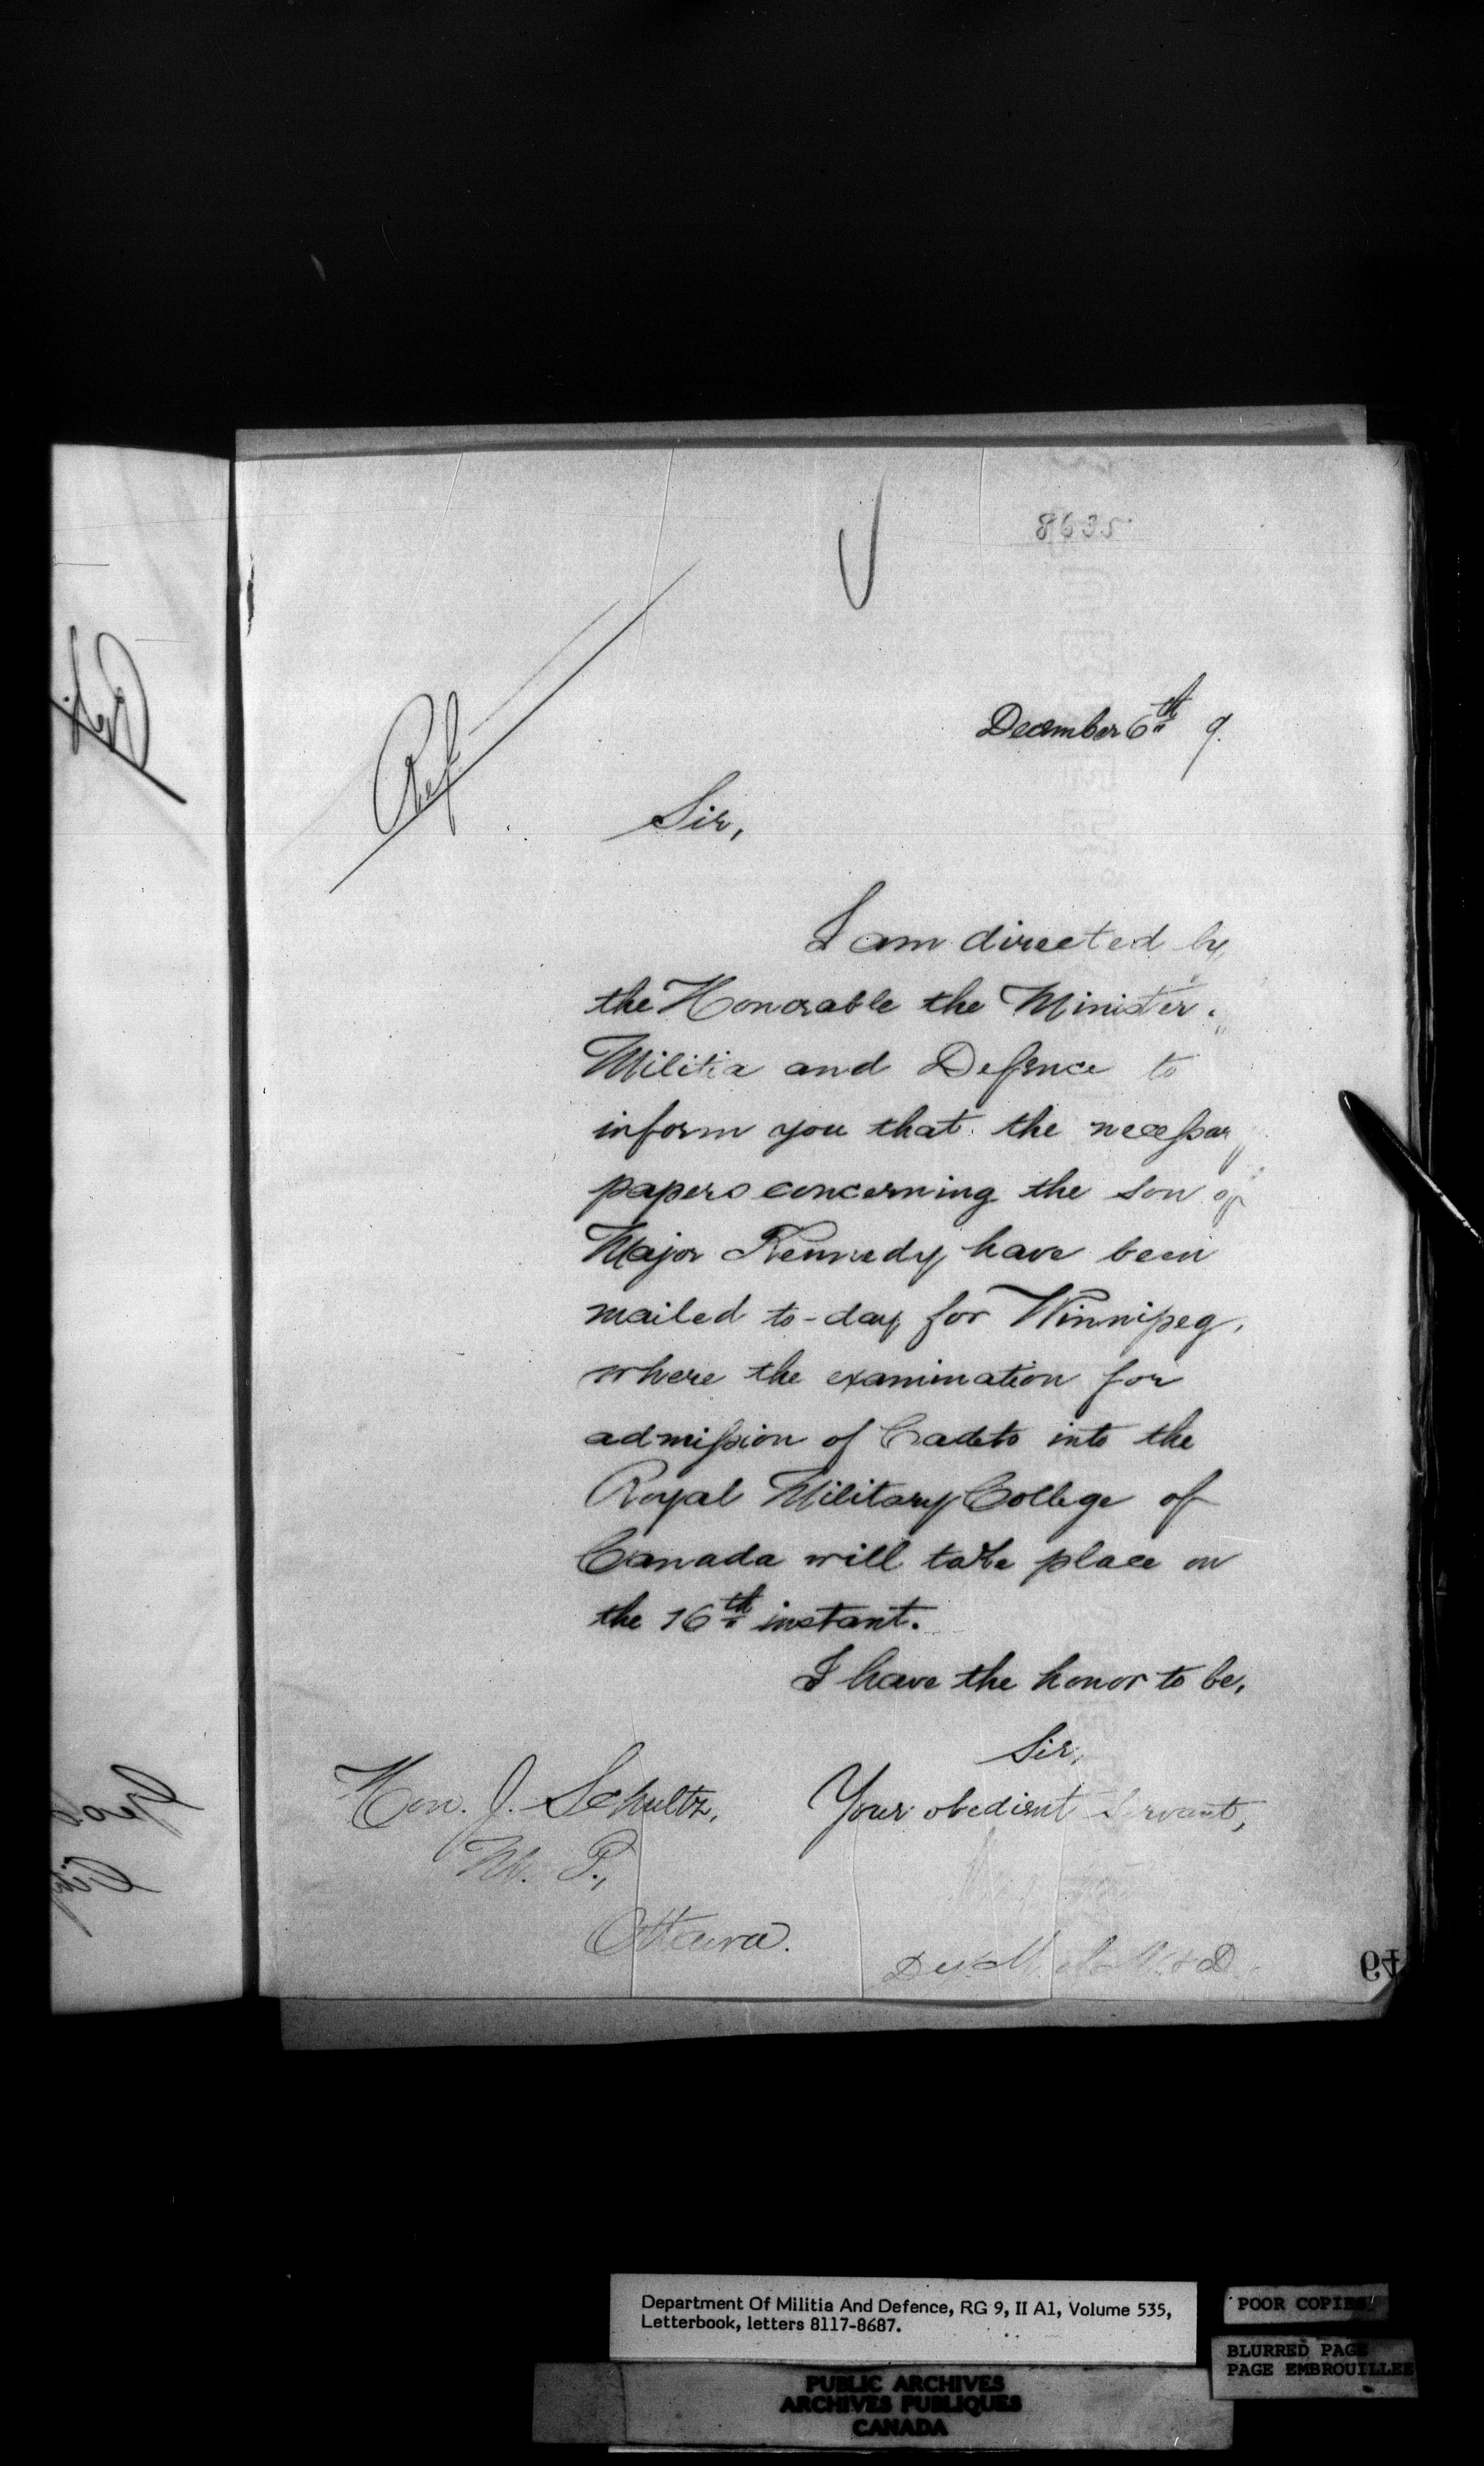 8635
Ref
December 6th 9.
Sir,
I am directed by
the Honorable the Minister
Militia and Defence to
inform you that the necessary
papers concerning the son of
Major Kennedy have been
mailed to-day for Winnipeg,
where the examination for
admission of Cadets into the
Royal Military College of
Canada will take place on
the 16th instant.
I have the honor to be,
Sir,
Your obedient servant,
Hon. J. Schultz,
M. P.,
Ottawa.
Dep. M. of M. & D.
64
Department Of Militia And Defence, RG 9, II A1, Volume 535,
Letterbook, letters 8117-8687.
POOR COPIES
BLURRED PAGE
PAGE EMBROUILLEE
PUBLIC ARCHIVES
ARCHIVES PUBLIQUES
CANADA